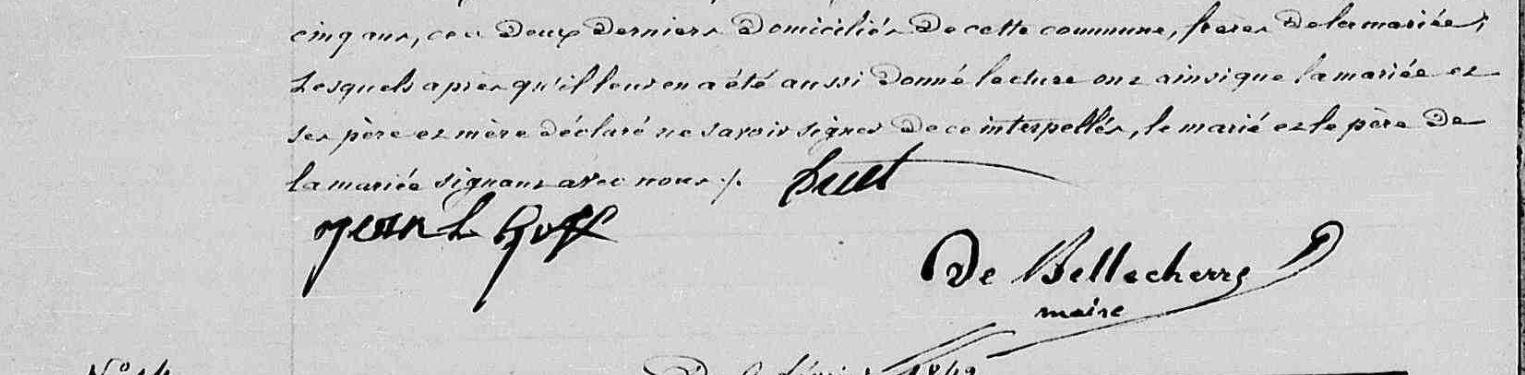 cinq ans, ces deux derniers domiciliés de cette commune, frères de la mariée,
Lesquels après qu'il leur en a été aussi donné lecture ont ainsi que la mariée et
ses père et mère déclaré ne savoir signer de ce interpellés, le marié et le père de
la mariée signant avec nous ./.
Jean Le Goff
De Bellecherre
maire
N° 14